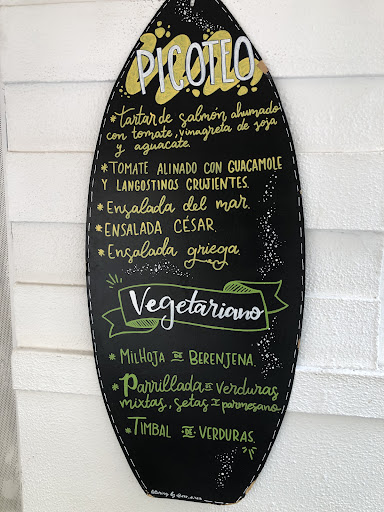 PICOTEO
* tartar de salmón ahumado
con tomate, vinagreta de soja
y aguacate.
* TOMATE ALINADO CON GUACAMOLE
Y LANGOSTINOS CRUJIENTES.
* Ensalada del mar.
* ENSALADA CÉSAR.
* Ensalada griega.
Vegetariano
* MILHOJA DE BERENJENA.
* Parrillada DE verduras
mixtas, setas Y parmesano.
* TIMBAL DE VERDURAS.
lettering by